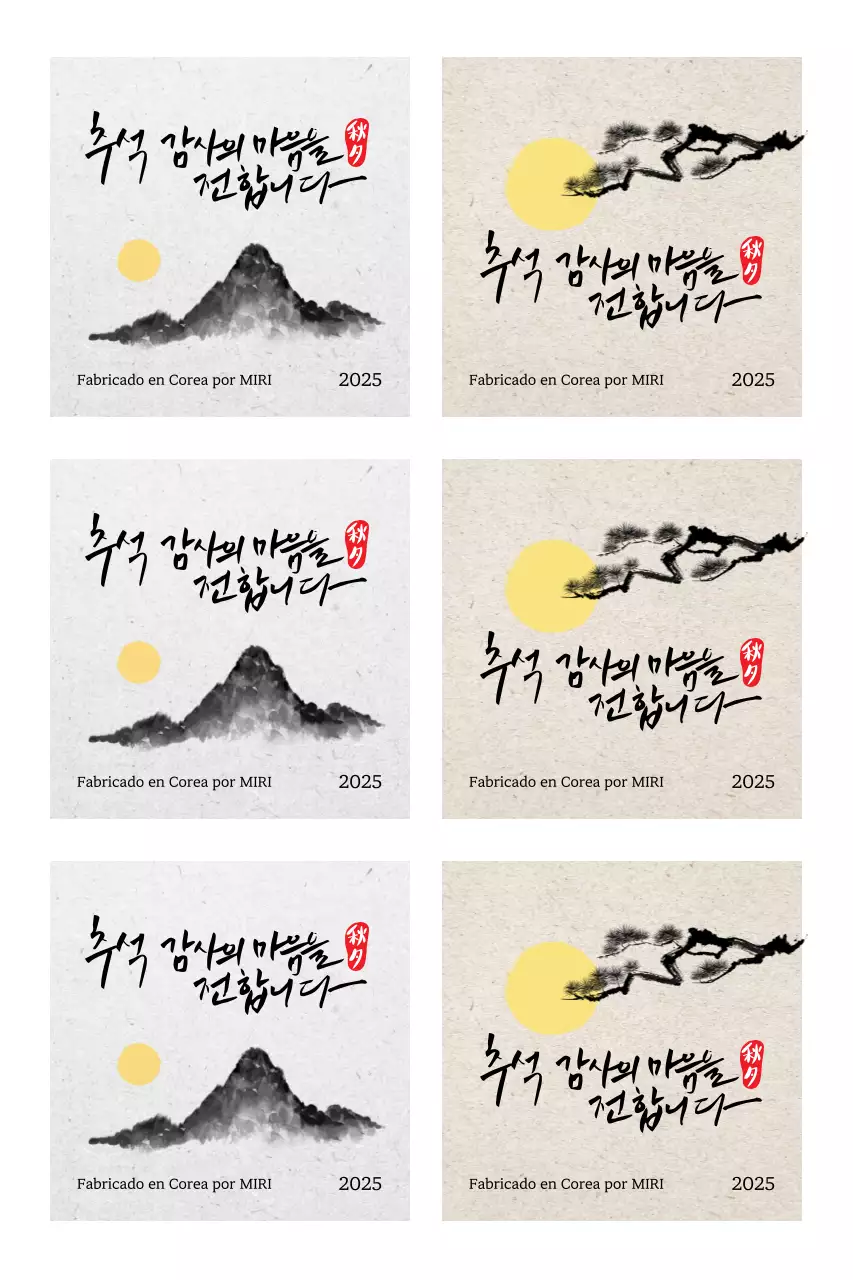 추석 감사의 마음을 秋夕
전합니다
Fabricado en Corea por MIRI 2025
추석 감사의 마음을 秋夕
전합니다
Fabricado en Corea por MIRI 2025
추석 감사의 마음을 秋夕
전합니다
Fabricado en Corea por MIRI 2025
추석 감사의 마음을 秋夕
전합니다
Fabricado en Corea por MIRI 2025
추석 감사의 마음을 秋夕
전합니다
Fabricado en Corea por MIRI 2025
추석 감사의 마음을 秋夕
전합니다
Fabricado en Corea por MIRI 2025